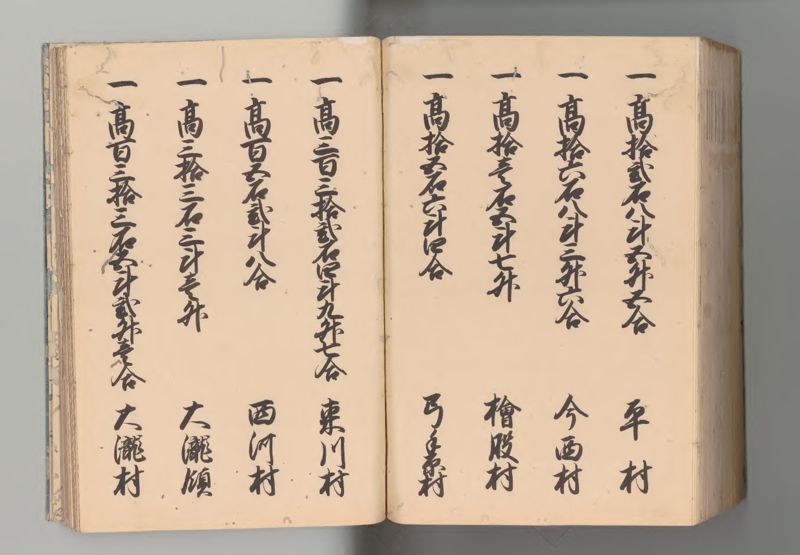 一高拾弐石八斗五升五合 平村
一高拾六石八斗三升六合 今西村
一高拾壱石五斗七升 檜股村
一高拾五石六斗四合 村
一高三百三拾弐石四斗九升七合 東川村
一高百五石弐斗八合 西河村
一高三拾三石三斗壱升 大瀧領
一高百三拾三石六斗弐升壱合 大瀧村